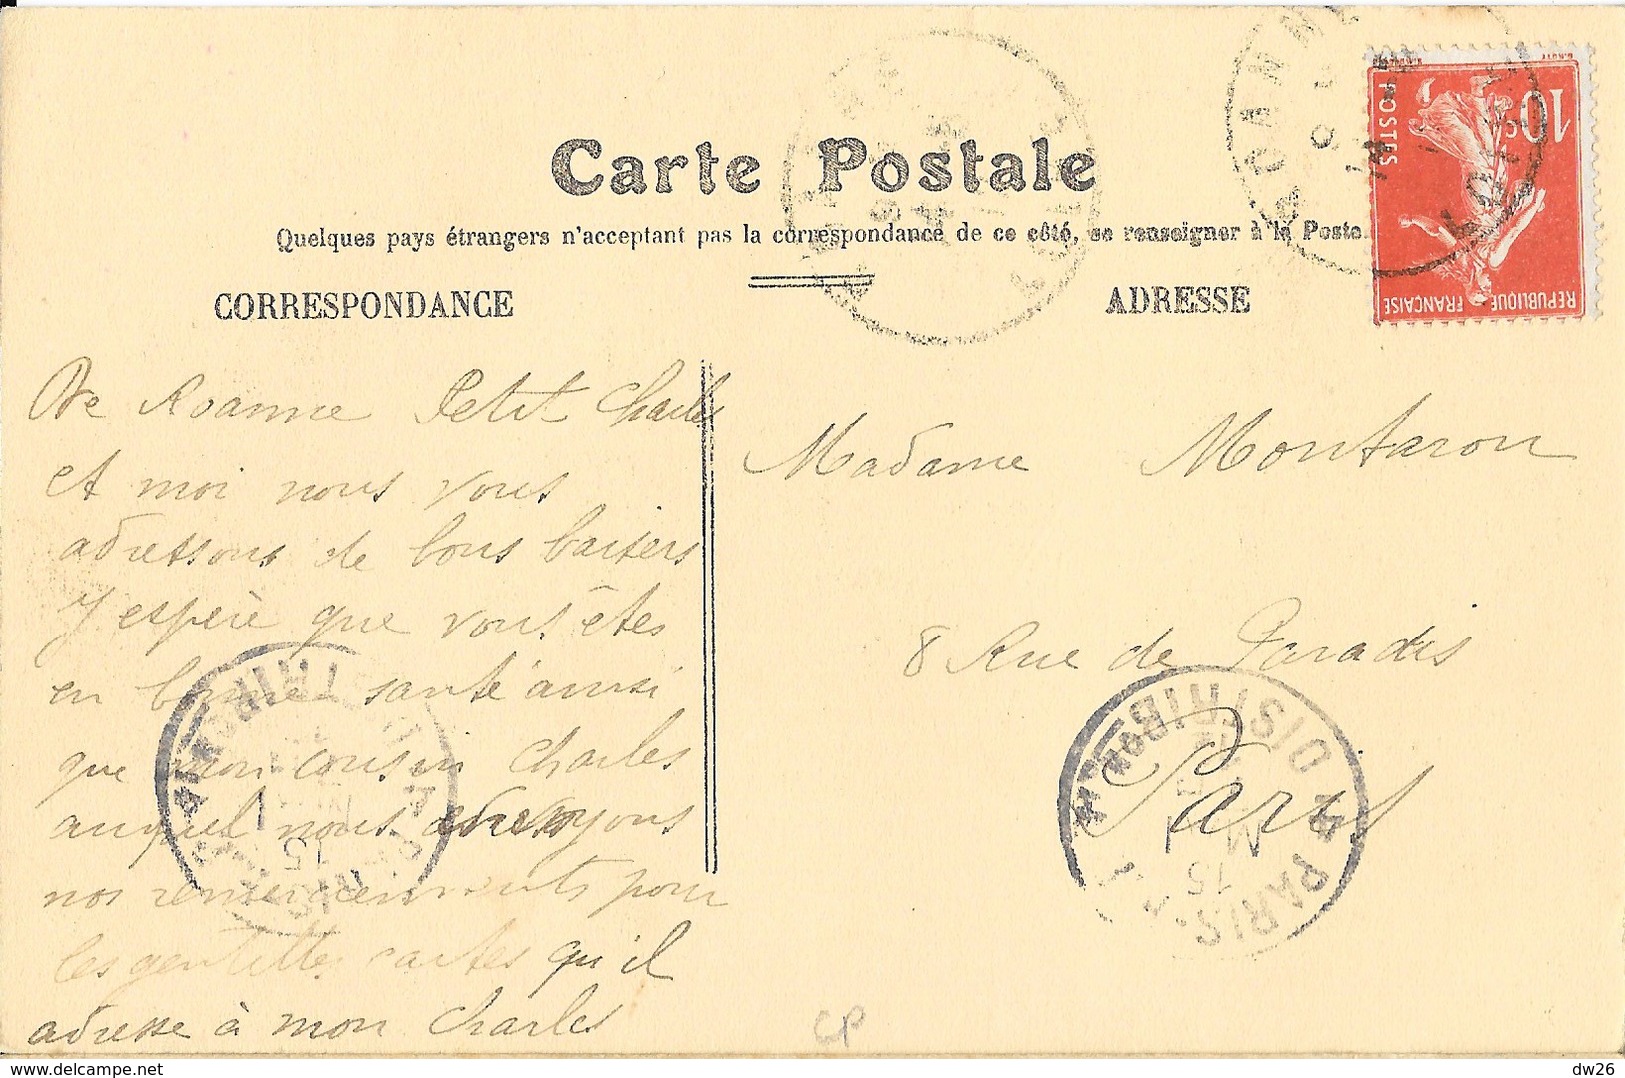 Carte Postale
Quelques pays étrangers n'acceptent pas la correspondance de ce côté, se renseigner à la Poste.
CORRESPONDANCE
ADRESSE
10c
POSTES
REPUBLIQUE FRANÇAISE
ROANNE
LOIRE
De Roanne Petit Charles
et moi nous vous
adressons de bons baisers
J'espère que vous êtes
en bonne santé ainsi
que mon cousin Charles
auquel nous envoyons
nos remerciements pour
les gentilles cartes qu'il
adresse à mon Charles
Madame Montaron
8 Rue de Paradis
Paris
PARIS
DISTRIBUTION
15
CP
dw26